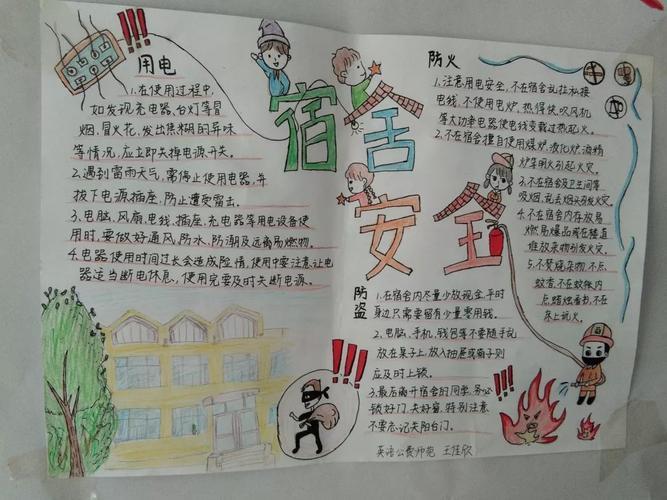 宿舍安全
用电
1.在使用过程中,
如发现充电器,台灯等冒
烟,冒火花,发出焦糊的异味
等情况,应立即关掉电源开关。
2.遇到雷雨天气,需停止使用电器,并
拔下电源插座,防止遭受雷击。
3.电脑,风扇,电线,插座,充电器等用电设备使
用时,要做好通风,防水,防潮及远离易燃物。
4.电器使用时间过长会造成险情,使用中要注意让电
器适当断电休息,使用完要及时关断电源。
防火
1.注意用电安全,不在宿舍乱拉私接
电线,不使用电炉,热得快,吹风机
等大功率电器使电线变载过热起火。
2.不在宿舍擅自使用煤炉,液化炉,酒精
炉等用火引起火灾。
3.不在宿舍及卫生间等
吸烟,乱丢烟头引发火灾。
4.不在宿舍内存放易
燃易爆品或在楼道
堆放杂物引发火灾。
5.不焚烧杂物,不点
蚊香,不在蚊帐内
点蜡烛看书,不在
床上玩火。
防盗
1.在宿舍内尽量少放现金,平时
身边只需要留有少量零用钱。
2.电脑,手机,钱包等不要随手玩
放在桌子上,放入抽屉或箱子则
应及时上锁。
3.最后离开宿舍的同学,务必
锁好门,关好窗,特别注意
不要忘记关阳台门。
英语公费师范 王佳欣